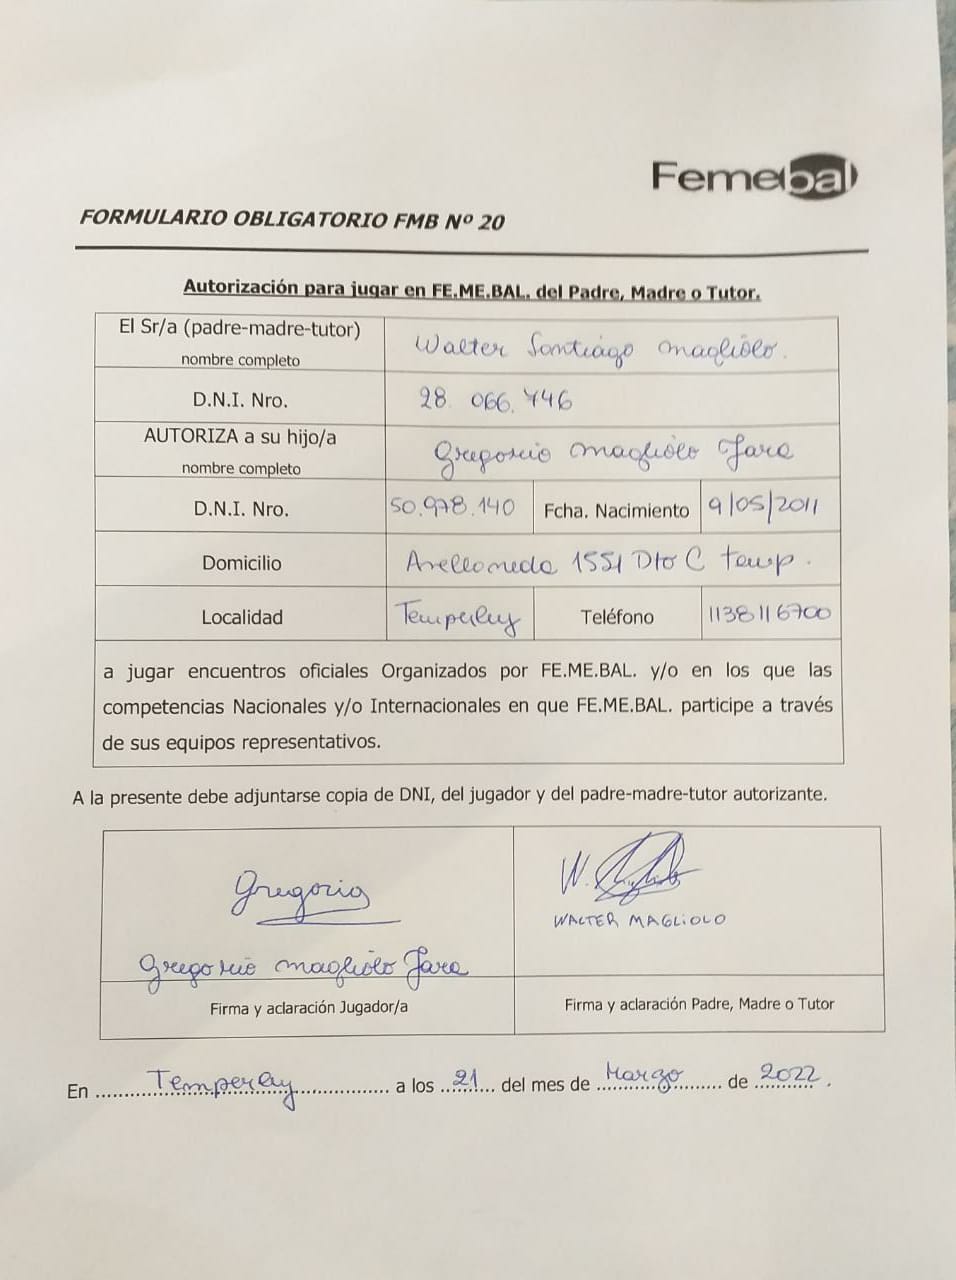 Femebal
FORMULARIO OBLIGATORIO FMB Nº 20
Autorización para jugar en FE.ME.BAL. del Padre, Madre o Tutor.
El Sr/a (padre-madre-tutor)
nombre completo
Walter Santiago Magliolo.
D.N.I. Nro.
28.066.746
AUTORIZA a su hijo/a
nombre completo
Gregorio Magliolo Jara
D.N.I. Nro.
50.978.140
Fcha. Nacimiento
9/05/2011
Domicilio
Avellaneda 1551 Dto C Temp.
Localidad
Temperley
Teléfono
1138116700
a jugar encuentros oficiales Organizados por FE.ME.BAL. y/o en los que las
competencias Nacionales y/o Internacionales en que FE.ME.BAL. participe a través
de sus equipos representativos.
A la presente debe adjuntarse copia de DNI, del jugador y del padre-madre-tutor autorizante.
Gregorio
Gregorio Magliolo Jara
Firma y aclaración Jugador/a
W.
WALTER MAGLIOLO
Firma y aclaración Padre, Madre o Tutor
En Temperley a los 21 del mes de Marzo de 2022.